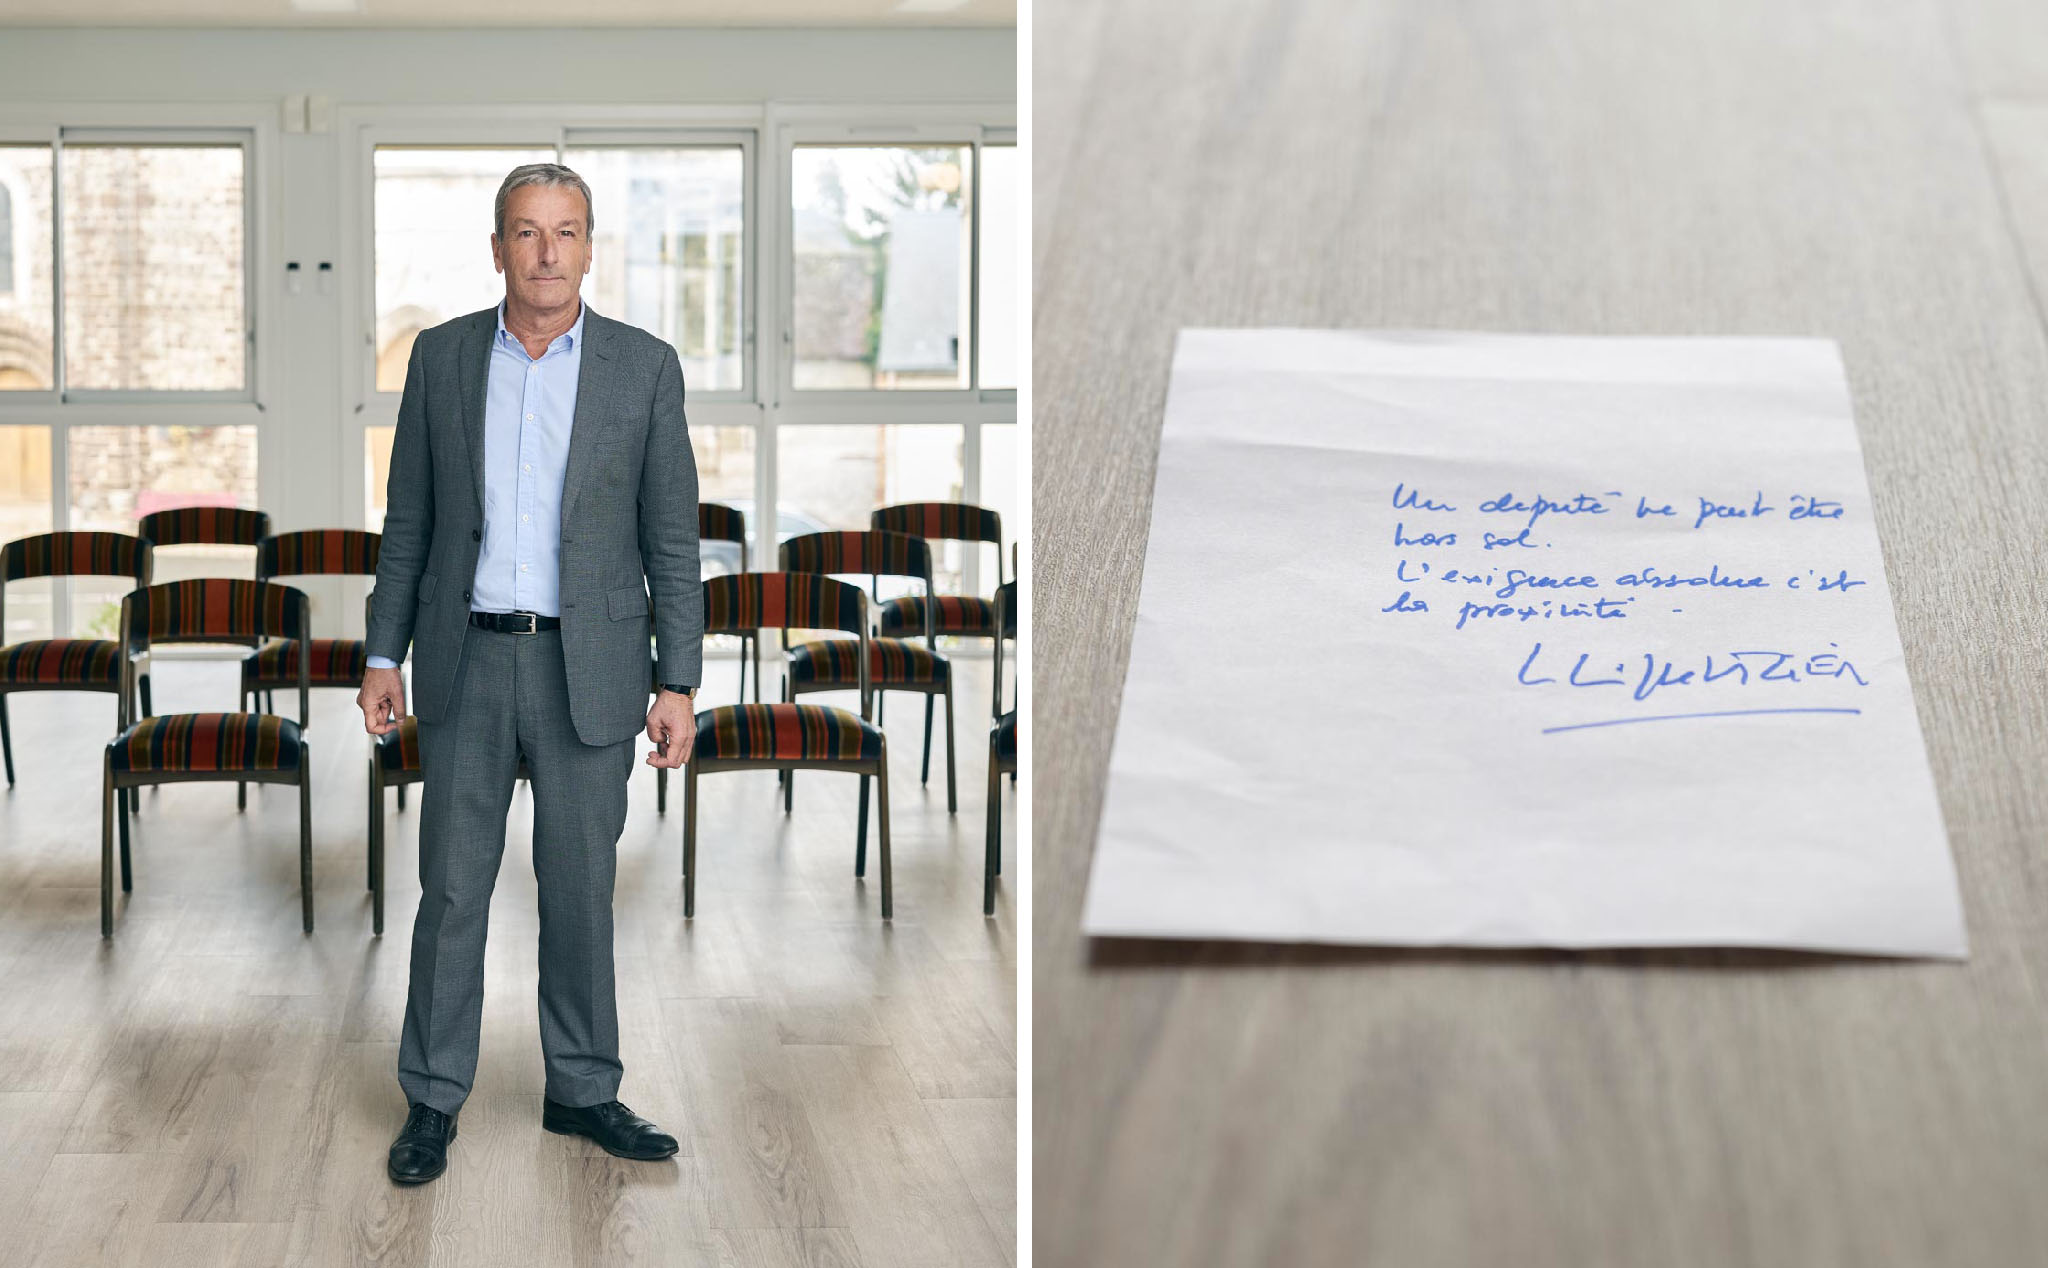 Un député ne peut être
hors sol.
L'exigence absolue c'est
la proximité -